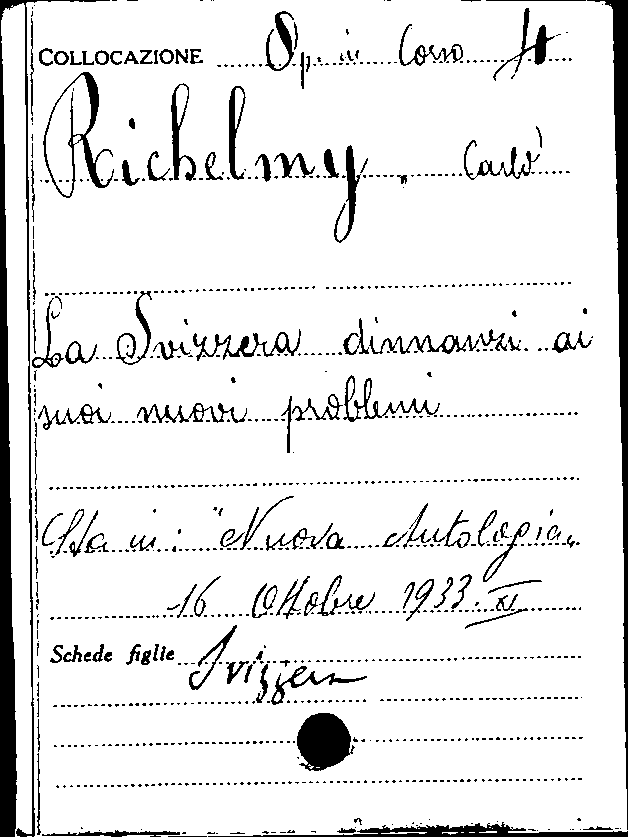 COLLOCAZIONE Op. in Corso
Richelmy, Carlo
La Svizzera dinnanzi ai
suoi nuovi problemi
Sta in: "Nuova Antologia"
16 Ottobre 1933. XI
Schede figlie Svizzera